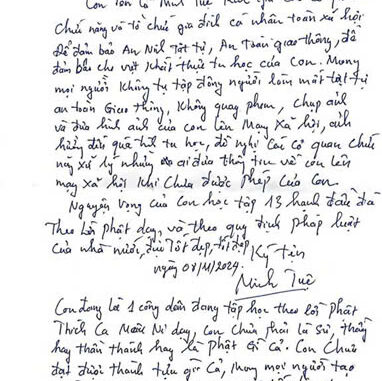 Con tên là Minh Tuệ
Chức năng và tổ chức gia đình cá nhân toàn xã hội
Để đảm bảo An Ninh trật tự, An Toàn giao thông, để
đảm bảo cho việc khất thực tu học của Con. Mong
mọi người Không tụ tập đông người làm mất trật tự
an toàn Giao thông, Không quay phim, chụp ảnh
và đưa hình ảnh của con lên Mạng Xã hội, ảnh
hưởng đến quá trình tu học, đề nghị Các cơ quan chức
năng xử lý những ai đưa thông tin về con lên
mạng xã hội Khi Chưa được phép Của Con.
Nguyện vọng của Con học tập 13 hạnh đầu đà
Theo lời phật dạy, và theo quy định pháp luật
Của nhà nước, đạo tốt đẹp, tốt đẹp
Ký Tên
ngày 08/11/2024
Minh Tuệ
Con đang là 1 công dân đang tập học theo lời Phật
Thích Ca Mâu Ni dạy, con chưa phải là sư, thầy
hay thần thánh hay là phật gì cả. Con Chưa
đạt được thành tựu gì Cả, mong mọi người tạo